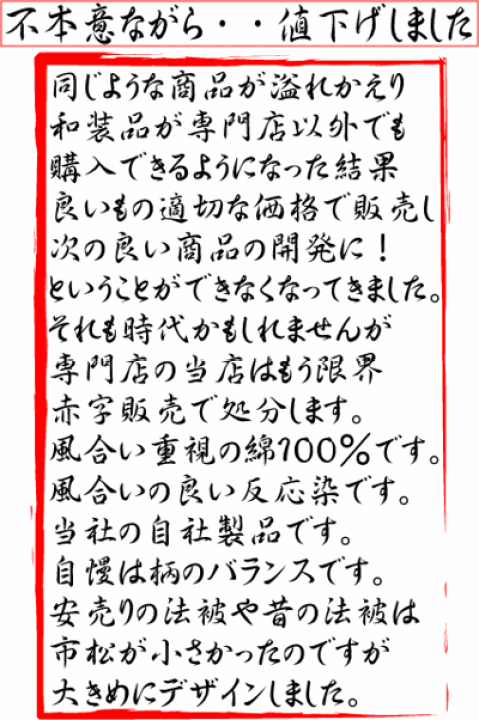 不本意ながら・・値下げしました
同じような商品が溢れかえり
和装品が専門店以外でも
購入できるようになった結果
良いもの適切な価格で販売し
次の良い商品の開発に！
ということができなくなってきました。
それも時代かもしれませんが
専門店の当店はもう限界
赤字販売で処分します。
風合い重視の綿100%です。
風合いの良い反応染です。
当社の自社製品です。
自慢は柄のバランスです。
安売りの法被や昔の法被は
市松が小さかったのですが
大きめにデザインしました。